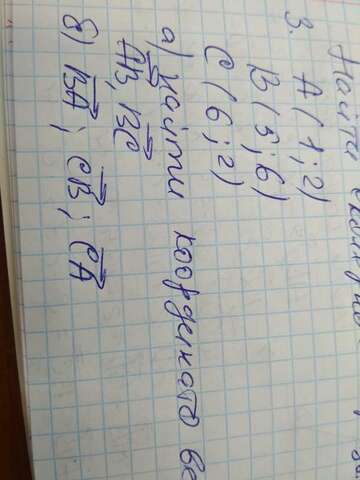 Найти
3. A(1;2)
B(5;6)
C(6;2)
а) Найти координата ве
AB, BC
б) BA; CB; CA